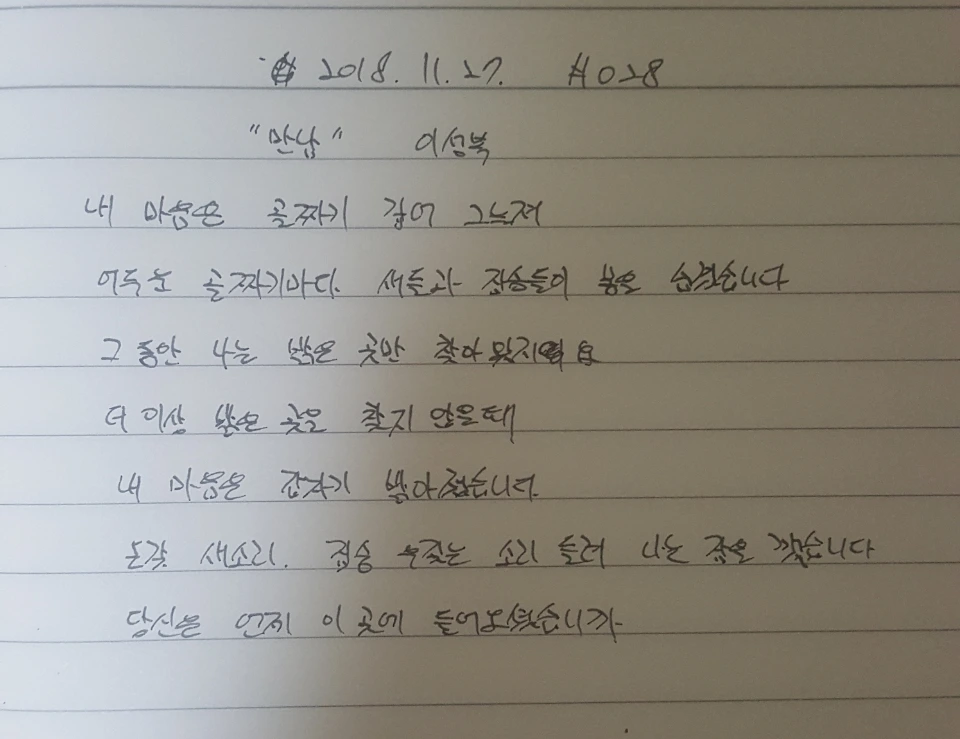 2018. 11. 27. #028
"만남" 이성복
내 마음은 골짜기 깊어 그늘져
어두운 골짜기마다 새들과 짐승들이 몸을 숨겼습니다
그 동안 나는 밝은 곳만 찾아 왔지요
더 이상 밝은 곳을 찾지 않을 때
내 마음은 갑자기 밝아졌습니다
온갖 새소리. 짐승 우짖는 소리 들려 나는 잠을 깼습니다
당신은 언제 이 곳에 들어오셨습니까